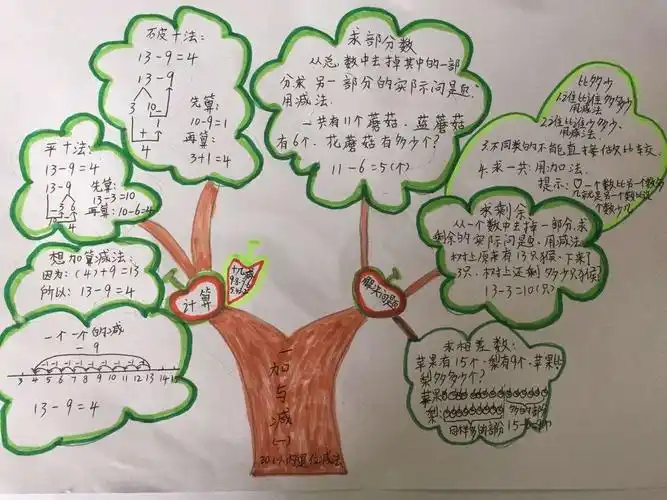 破十法：
13-9=4
13-9
3 10
+
4
先算：
10-9=1
再算：
3+1=4
平十法：
13-9=4
13-9
3 6
4
先算：
13-3=10
再算：10-6=4
想加算减法：
因为：(4)+9=13
所以：13-9=4
一个一个的减
-9
3 4 5 6 7 8 9 10 11 12 13 14 15
13-9=4
计算
求部分数
从总数中去掉其中的一部
分求另一部分的实际问题，
用减法．
一共有11个蘑菇．蓝蘑菇
有6个．花蘑菇有多少个？
11-6=5(个)
比多少
用减法
用减法．
3.不同类的不能直接
4.求一共：用加法．
提示：
一个数比另一个数
就是另一个数比这
个数少几
求剩余
从一个数中去掉一部分．求
剩余的实际问题，用减法
树上原来有13只猴．下来了
3只．树上还剩多少只猴？
13-3=10(只)
解决问题
求相差数：
苹果有15个．梨有9个．苹果比
梨多多少个？
苹果
多的部分
梨：
同样多的部分
一
加
与
减
(一)
20以内退位减法